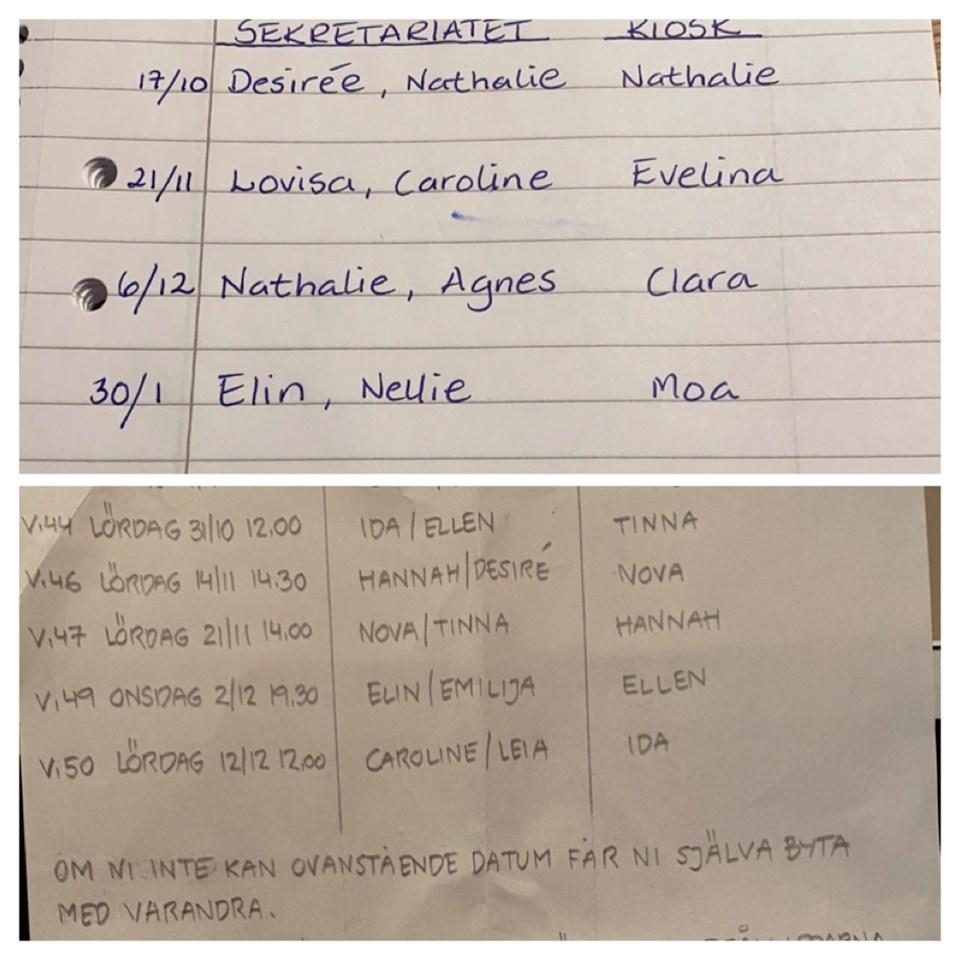 SEKRETARIATET KIOSK
17/10 Desirée, Nathalie Nathalie
21/11 Lovisa, Caroline Evelina
6/12 Nathalie, Agnes Clara
30/1 Elin, Nellie Moa
V.44 LÖRDAG 31/10 12.00 IDA/ELLEN TINNA
V.46 LÖRDAG 14/11 14.30 HANNAH/DESIRÉ NOVA
V.47 LÖRDAG 21/11 14.00 NOVA/TINNA HANNAH
V.49 ONSDAG 2/12 19.30 ELIN/EMILIJA ELLEN
V.50 LÖRDAG 12/12 12.00 CAROLINE/LEIA IDA
OM NI INTE KAN OVANSTÅENDE DATUM FÅR NI SJÄLVA BYTA
MED VARANDRA.